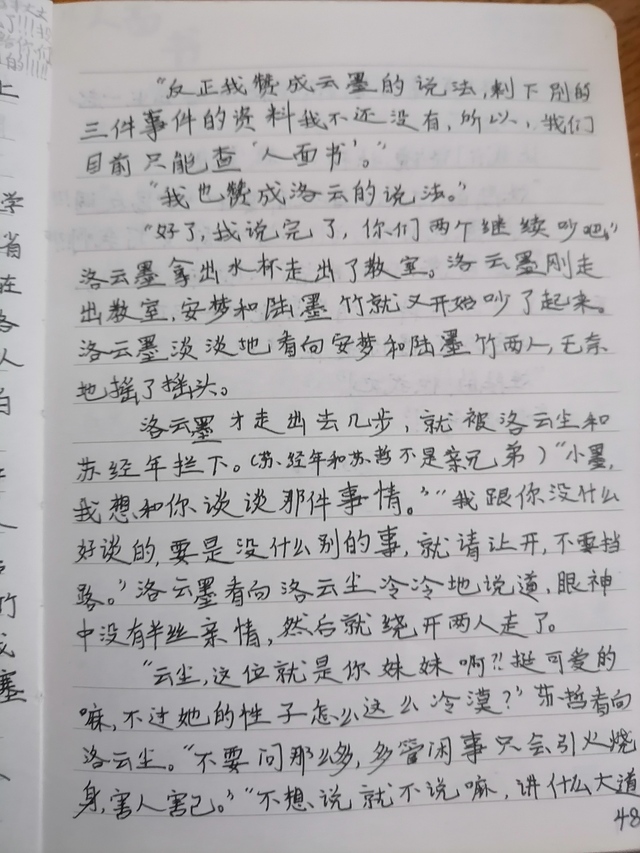 “反正我赞成云墨的说法,剩下别的
三件事件的资料我不还没有,所以,我们
目前只能查‘人面书’。”
“我也赞成洛云的说法。”
“好了,我说完了,你们两个继续吵吧”
洛云墨拿出水杯走出了教室。洛云墨刚走
出教室,安梦和陆墨竹就又开始吵了起来。
洛云墨淡淡地看向安梦和陆墨竹两人,无奈
地摇了摇头。
洛云墨才走出去几步,就被洛云尘和
苏经年拦下。(苏经年和苏哲不是亲兄弟)“小墨,
我想和你谈谈那件事情。”“我跟你没什么
好谈的,要是没什么别的事,就请让开,不要挡
路。”洛云墨看向洛云尘冷冷地说道,眼神
中没有半丝亲情,然后就绕开两人走了。
“云尘,这位就是你妹妹啊?!挺可爱的
嘛,不过她的性子怎么这么冷漠?”苏哲看向
洛云尘。“不要问那么多,多管闲事只会引火烧
身,害人害己。”“不想说就不说嘛,讲什么大道
48
学
省
在
洛
人
竹
成
墨